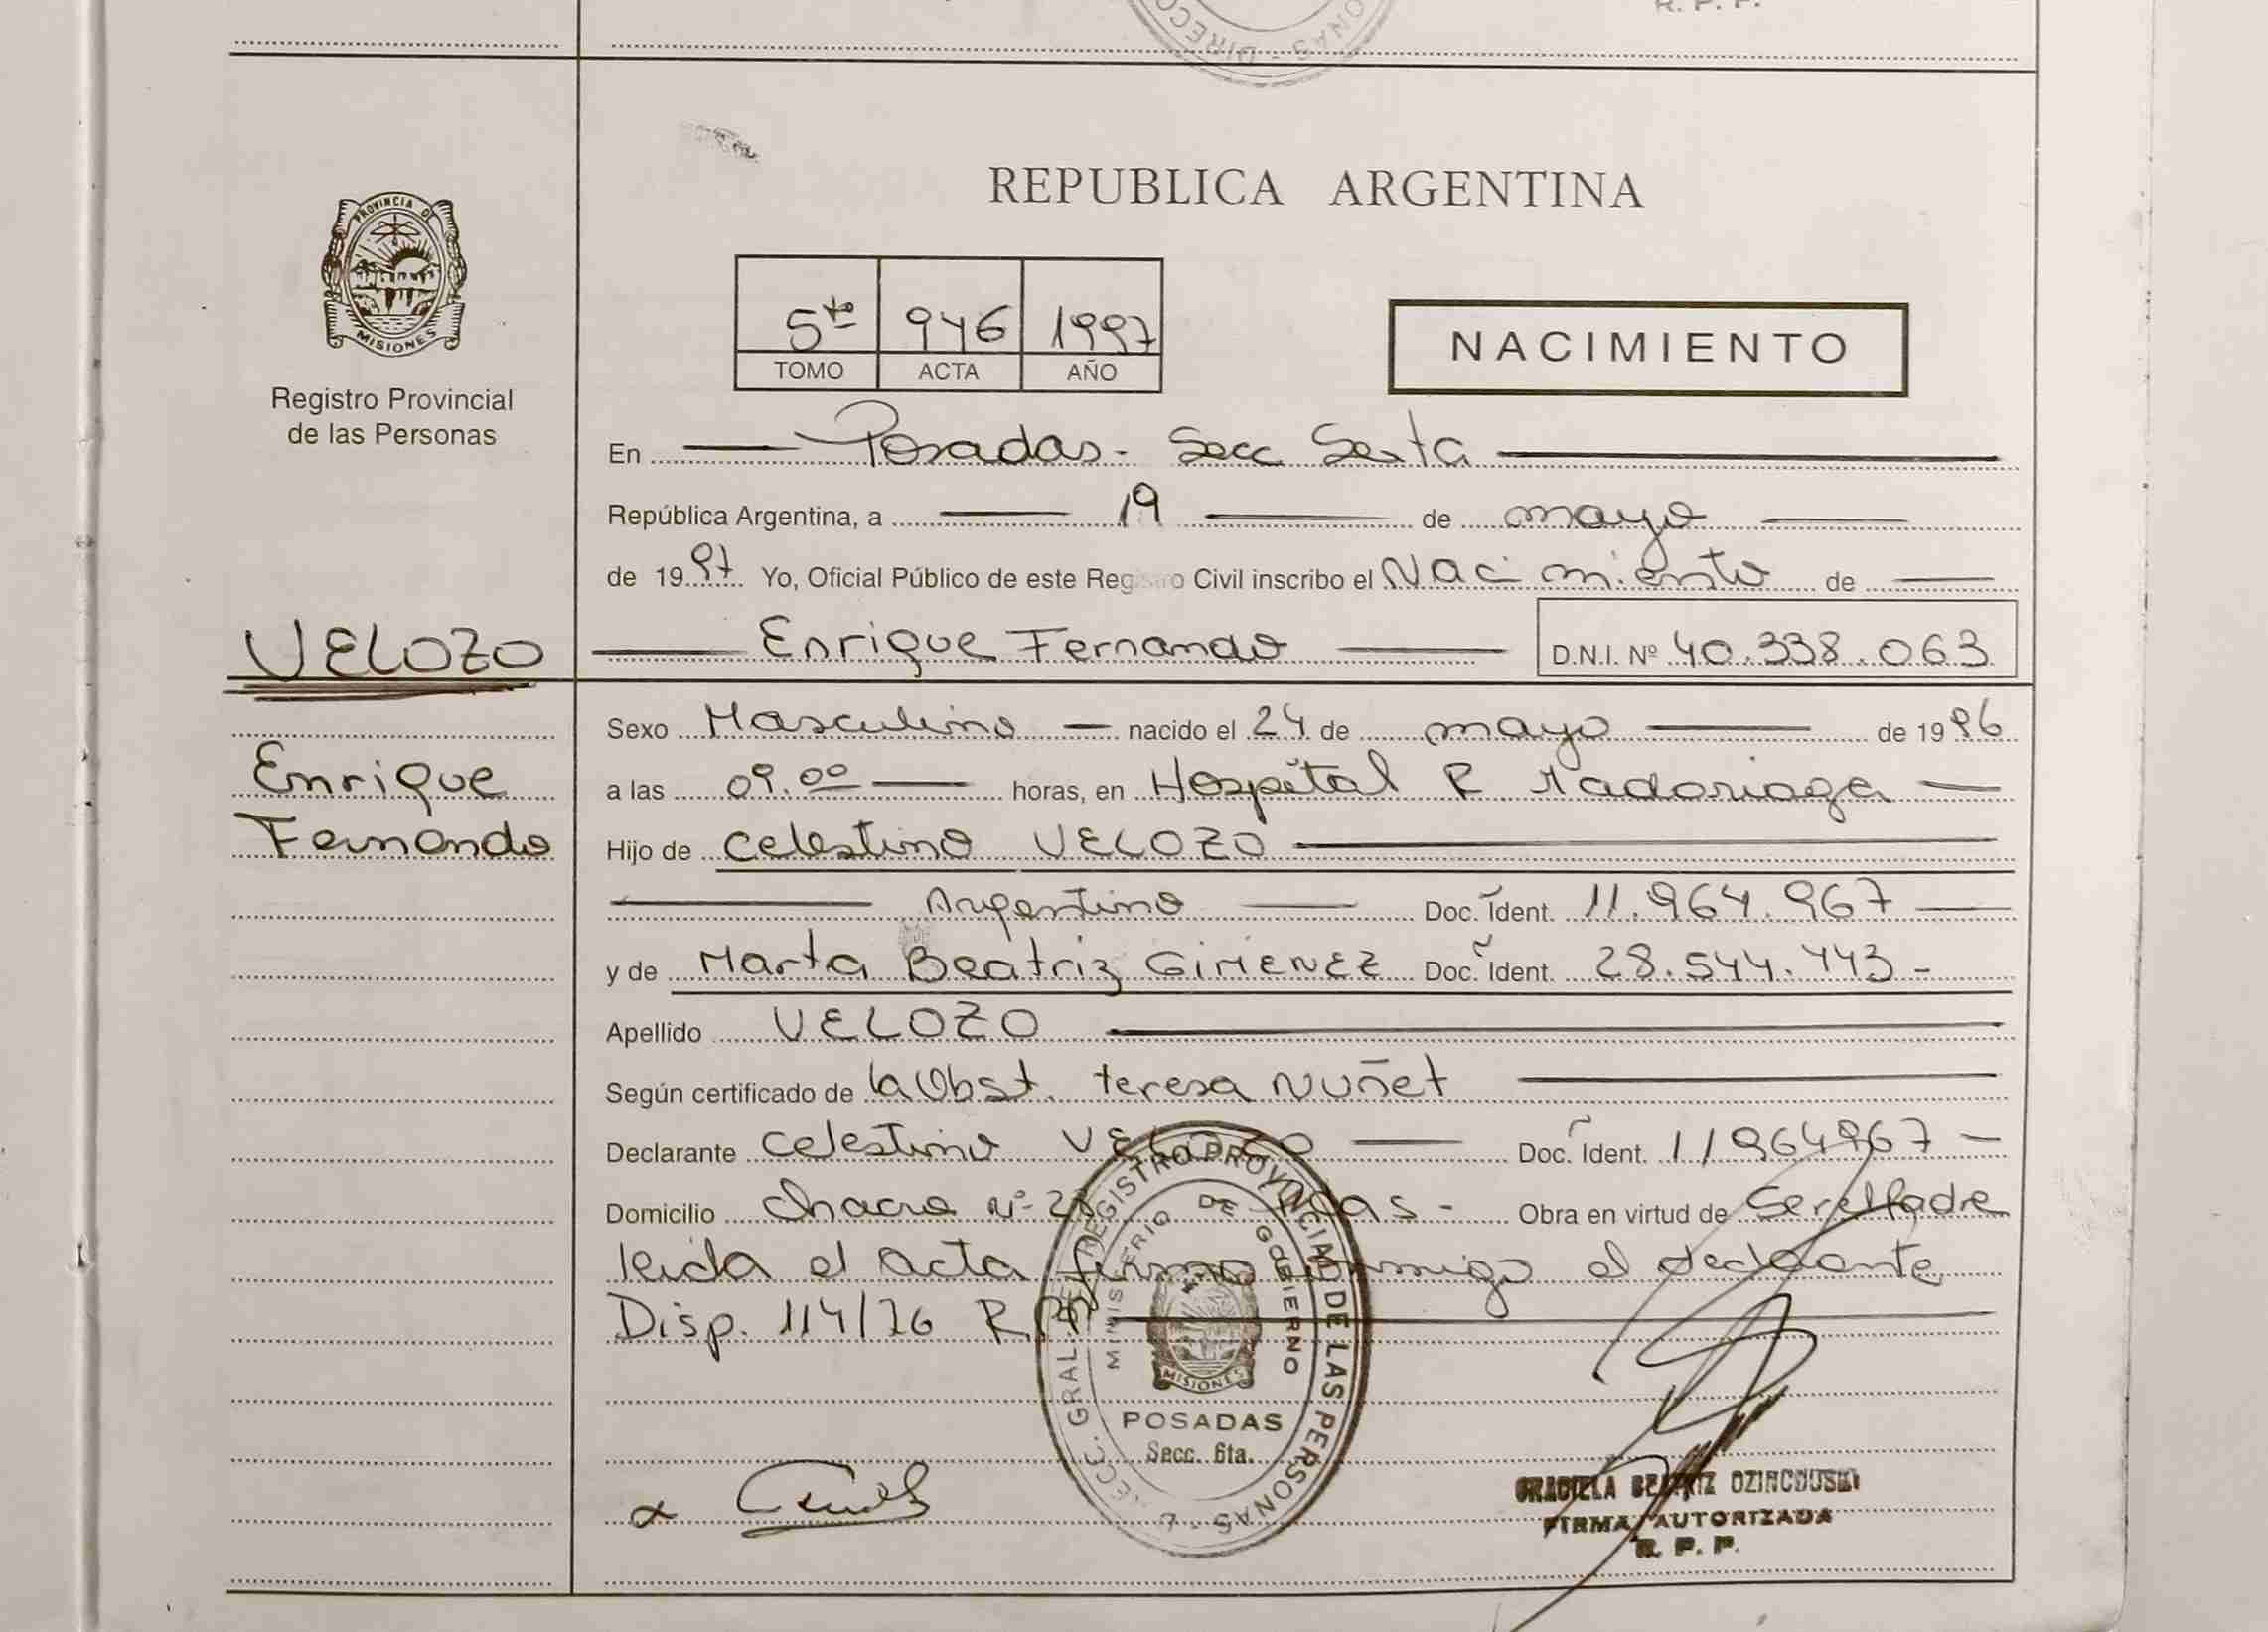 R. P. P.
DIRECC
ONAS
PROVINCIA DE
MISIONES
Registro Provincial
de las Personas
REPUBLICA ARGENTINA
5to 946 1997
TOMO ACTA AÑO
NACIMIENTO
En Posadas - Secc Sexta
República Argentina, a 19 de mayo
de 1997 Yo, Oficial Público de este Registro Civil inscribo el Nacimiento de
VELOZO
Enrique Fernando D.N.I. Nº 40.338.063
Sexo Masculino nacido el 24 de mayo de 1996
Enrique
a las 09.00 horas, en Hospital R Madariaga
Fernando
Hijo de Celestino VELOZO
Argentino Doc. Ident. 11.964.967
y de Marta Beatriz GIMENEZ Doc. Ident. 28.544.443 -
Apellido VELOZO
Según certificado de la Obst. teresa Nuñet
Declarante Celestino VELOZO Doc. Ident. 11964967
Domicilio chacra Nº Obra en virtud de Ser el Padre
leida el acta firma conmigo el declarante
Disp. 114/76 R.P.P
DIRECC. GRAL. DEL REGISTRO PROVINCIAL DE LAS PERSONAS
MINISTERIO DE GOBIERNO
MISIONES
POSADAS
Secc. 6ta.
GRACIELA BEATRIZ OZINCOUSKI
FIRMA AUTORIZADA
R. P. P.